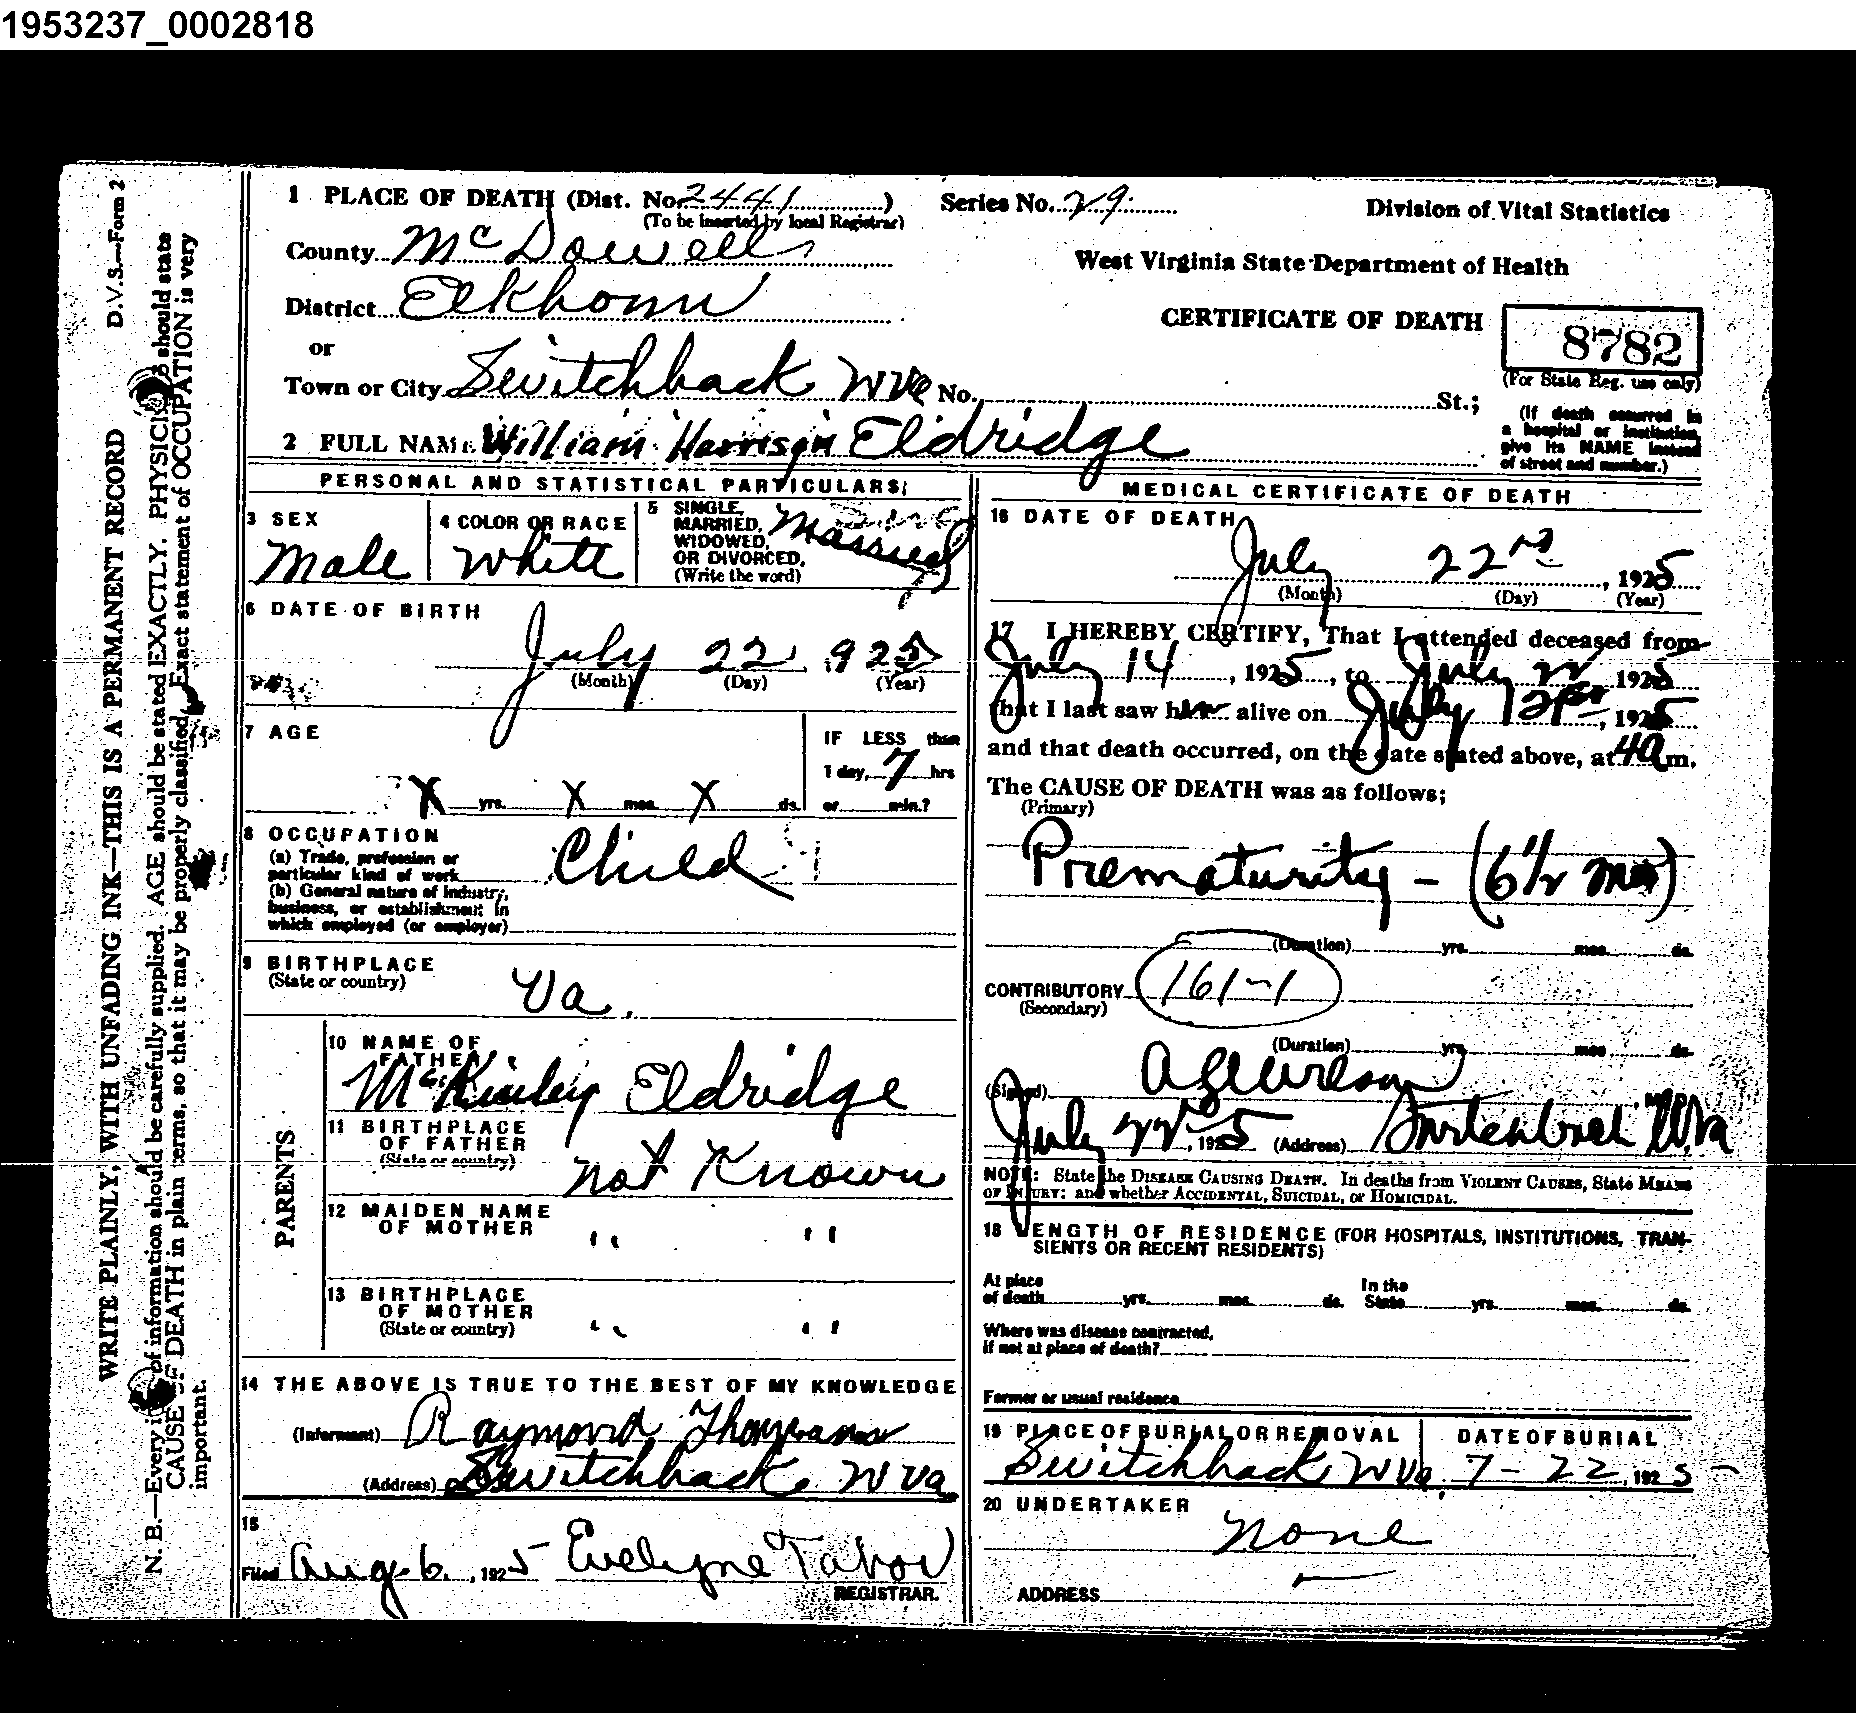 1953237_0002818
D.V.S.—Form 2
WRITE PLAINLY, WITH UNFADING INK—THIS IS A PERMANENT RECORD
N. B.—Every of information should be carefully supplied. AGE should be stated EXACTLY. PHYSICI should state
CAUSE OF DEATH in plain terms, so that it may be properly classified. Exact statement of OCCUPATION is very
important.
1 PLACE OF DEATH (Dist. No. 2441 ) Series No. 29 Division of Vital Statistics
(To be inserted by local Registrar)
County McDowell
West Virginia State Department of Health
District Elkhorn
CERTIFICATE OF DEATH 8782
or
(For State Reg. use only)
Town or City Switchback W Va No. St.;
(If death occurred in
a hospital or institution,
give its NAME instead
of street and number.)
2 FULL NAME William Harrison Eldridge
PERSONAL AND STATISTICAL PARTICULARS
3 SEX
Male
4 COLOR OR RACE
White
5 SINGLE,
MARRIED,
WIDOWED,
OR DIVORCED,
(Write the word)
Married
6 DATE OF BIRTH
July 22 1925
(Month) (Day) (Year)
7 AGE
X yrs. X mos. X ds.
IF LESS than
1 day, 7 hrs
or min.?
8 OCCUPATION
(a) Trade, profession or
particular kind of work Child
(b) General nature of industry,
business, or establishment in
which employed (or employer)
9 BIRTHPLACE
(State or country) Va.
PARENTS
10 NAME OF
FATHER
McKinley Eldridge
11 BIRTHPLACE
OF FATHER
(State or country) not Known
12 MAIDEN NAME
OF MOTHER " "
13 BIRTHPLACE
OF MOTHER
(State or country) " "
14 THE ABOVE IS TRUE TO THE BEST OF MY KNOWLEDGE
(Informant) Raymond
(Address) Switchback W Va
15
Filed Aug. 6, 1925 Evelyne Tabor
REGISTRAR.
MEDICAL CERTIFICATE OF DEATH
16 DATE OF DEATH
July 22nd, 1925
(Month) (Day) (Year)
17 I HEREBY CERTIFY, That I attended deceased from
July 14, 1925, to July 22 1925
that I last saw him alive on July, 1925
and that death occurred, on the date stated above, at 4a m.
The CAUSE OF DEATH was as follows;
(Primary)
Prematurity - (6 1/2 mos)
(Duration) yrs. mos. ds.
CONTRIBUTORY 161-1
(Secondary)
(Duration) yrs. mos. ds.
(Signed) M. D.
July 22, 1925 (Address) Switchback W.Va
NOTE: State the DISEASE CAUSING DEATH. In deaths from VIOLENT CAUSES, State MEANS
OF INJURY: and whether ACCIDENTAL, SUICIDAL, or HOMICIDAL.
18 LENGTH OF RESIDENCE (FOR HOSPITALS, INSTITUTIONS, TRAN-
SIENTS OR RECENT RESIDENTS)
At place
of death yrs. mos. ds. In the
State yrs. mos. ds.
Where was disease contracted,
if not at place of death?
Former or usual residence
19 PLACE OF BURIAL OR REMOVAL
Switchback W Va.
DATE OF BURIAL
7-22, 1925
20 UNDERTAKER
None
ADDRESS